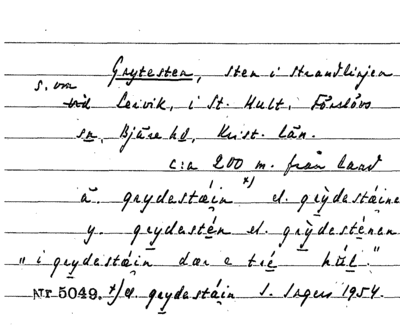 Grytesten, sten i strandlinjen
s. om
vid Leivik, i St. Hult, Förslövs
sn, Bjäre hd, Krist. län.
c:a 200 m. från land
ä. grydastæin *) el. grỳdastæine
y. grydastén el. grỳdasténen
"i grydastæin dær e tré hȧl."
Nr 5049. *) el. grydastäin I. Ingers 1954.